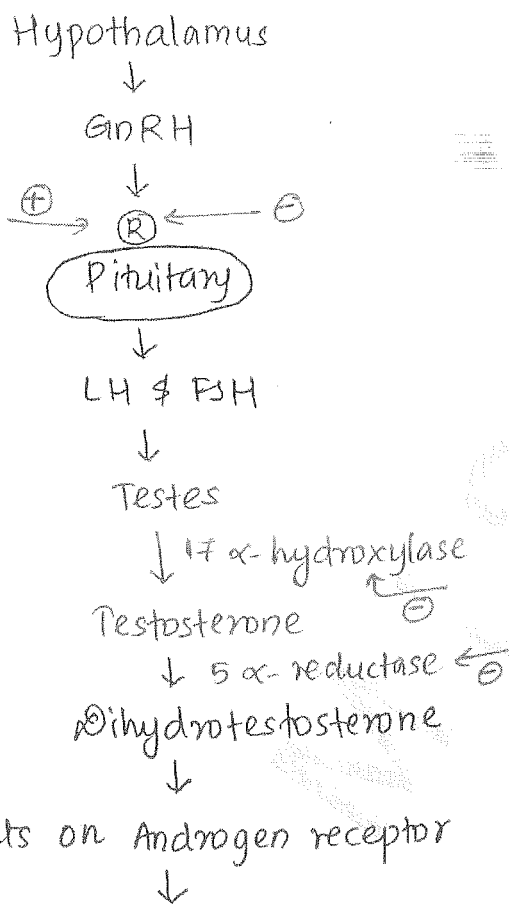 Hypothalamus
↓
GnRH
↓
⊕ → Ⓡ ← ⊖
Pituitary
↓
LH & FSH
↓
Testes
↓ 17 α-hydroxylase
⊖
Testosterone
↓ 5 α-reductase ← ⊖
Dihydrotestosterone
↓
ts on Androgen receptor
↓